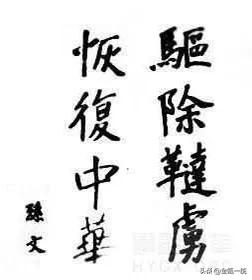 驅除韃虜
恢復中華
孫文
头条@金瓯一统